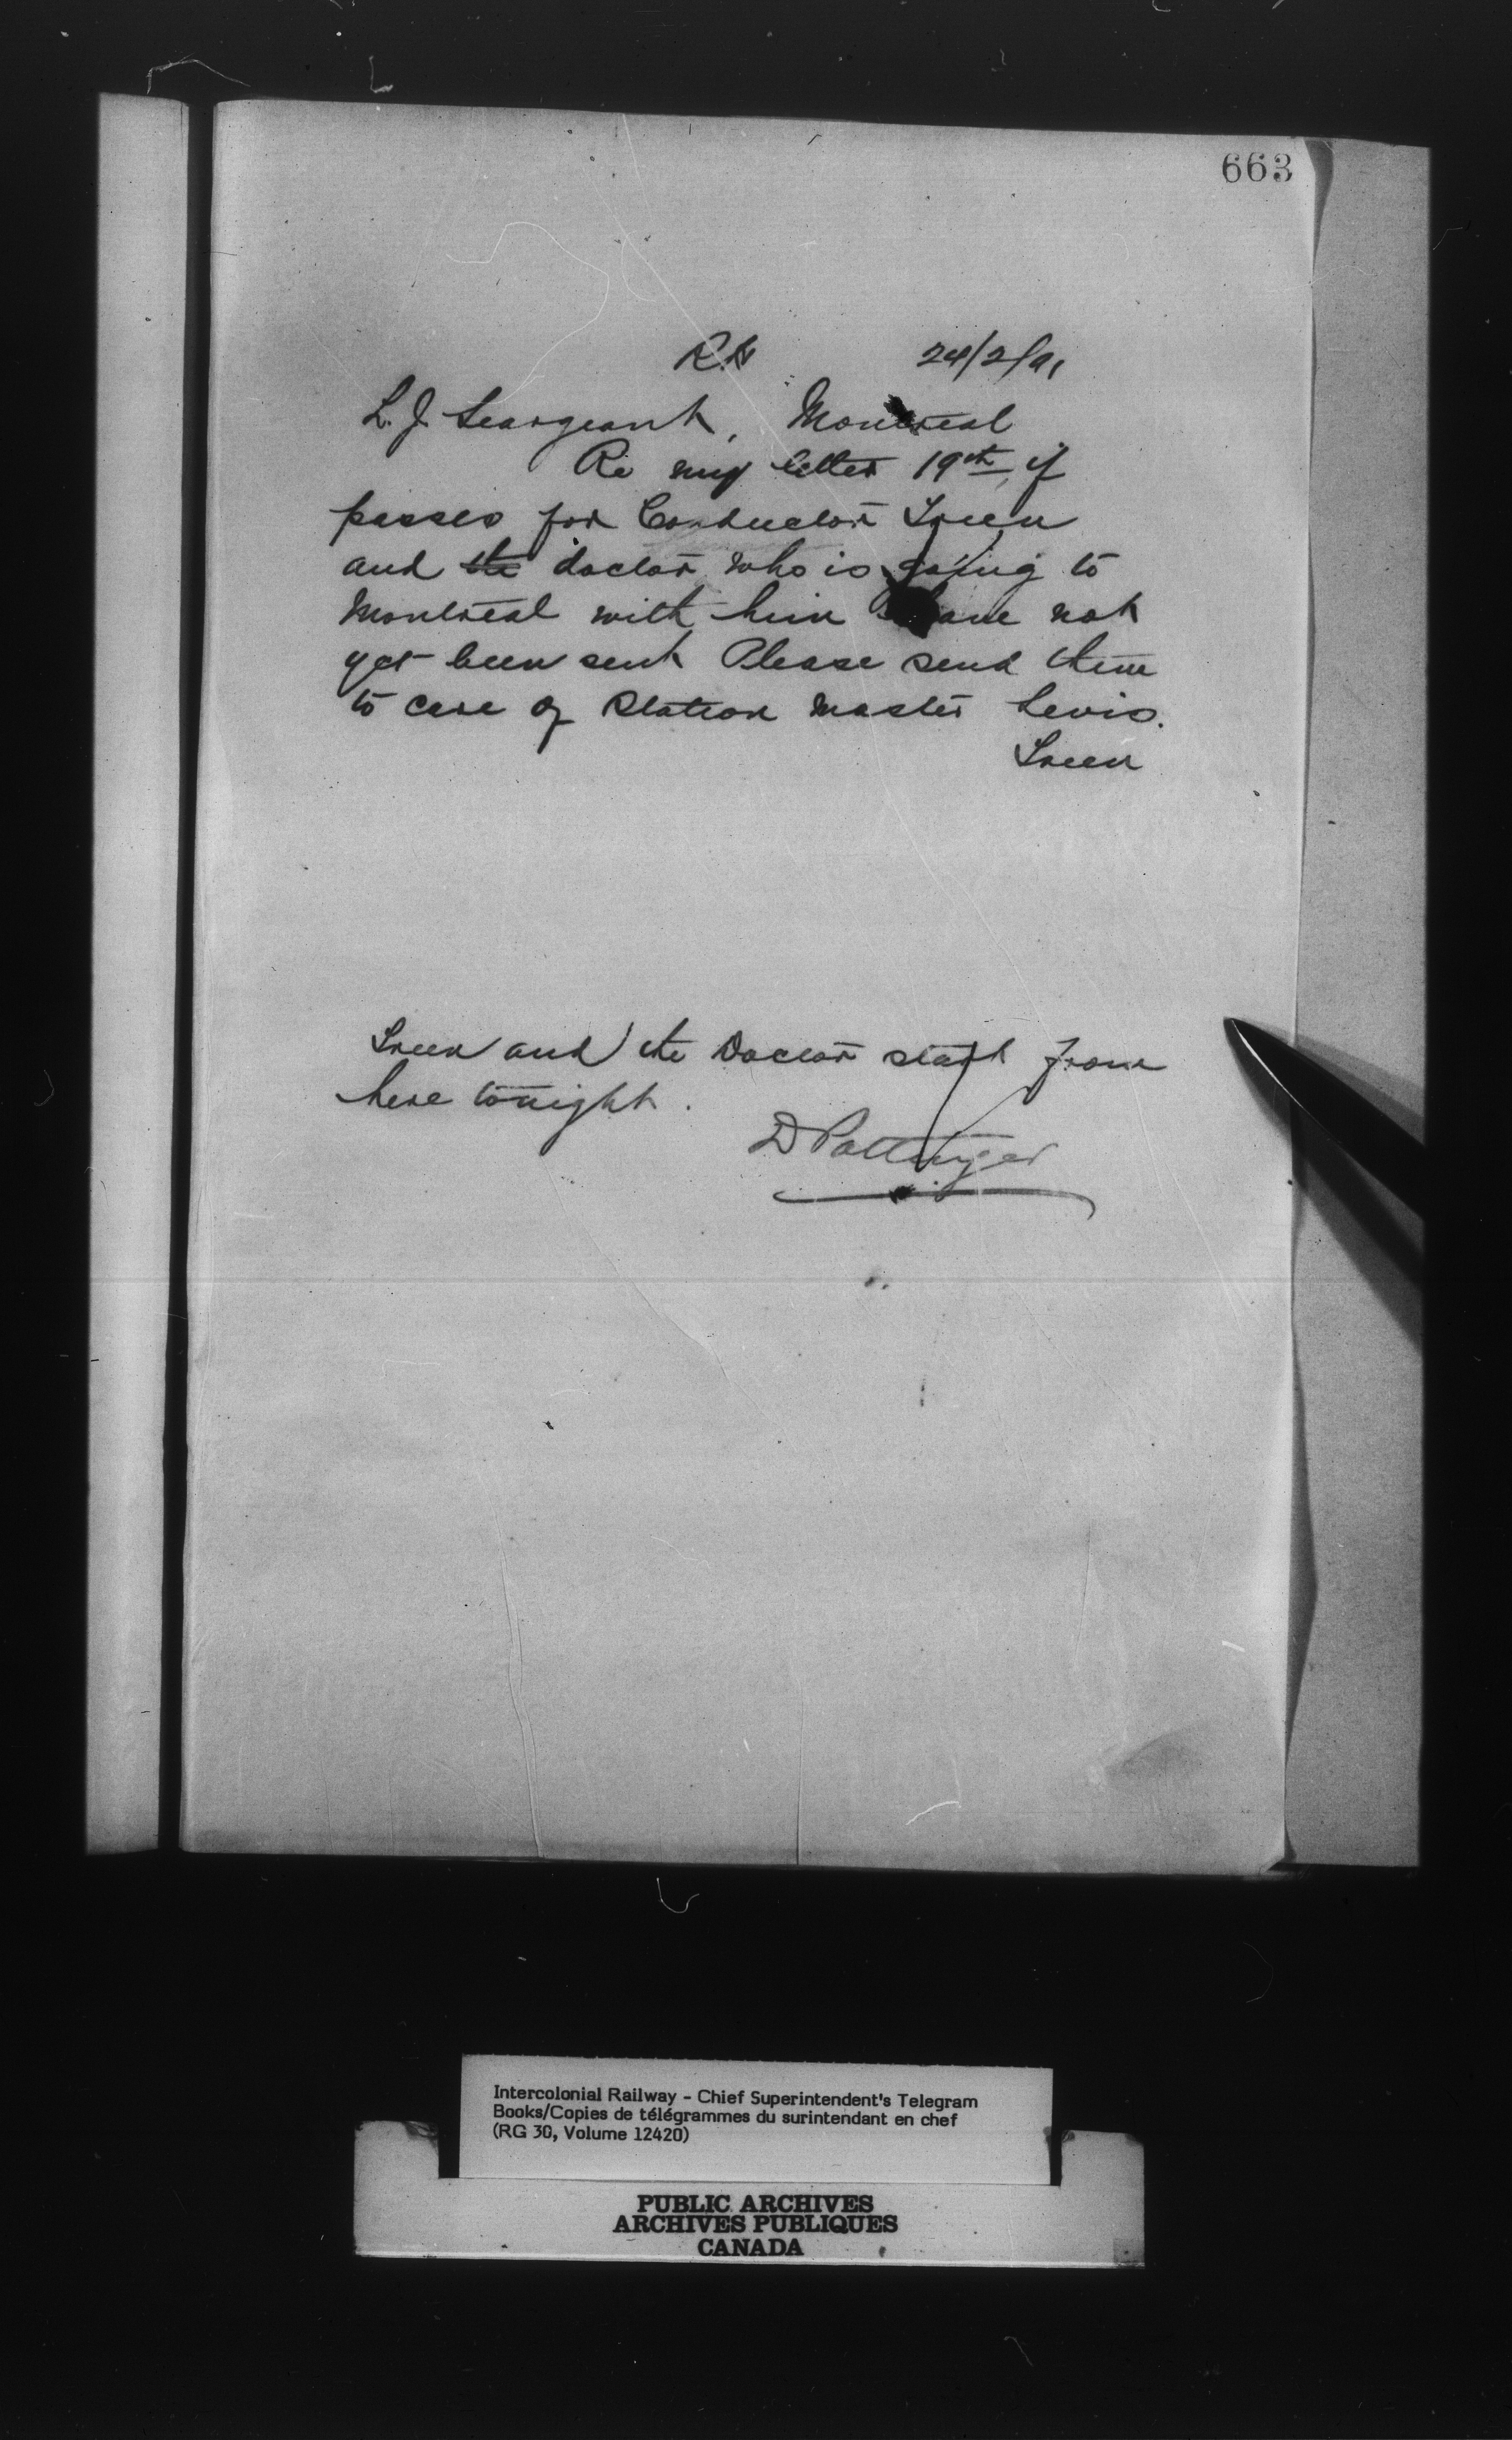 663
24/2/91
L. J. Seargeant, Montreal
Re my letter 19th, if
passes for Conductor Green
and the doctor who is going to
Montreal with him have not
yet been sent Please send them
to care of Station Master Levis.
Green
Green and the Doctor start from
here tonight.
D Pottinger
Intercolonial Railway - Chief Superintendent's Telegram
Books/Copies de télégrammes du surintendant en chef
(RG 30, Volume 12420)
PUBLIC ARCHIVES
ARCHIVES PUBLIQUES
CANADA